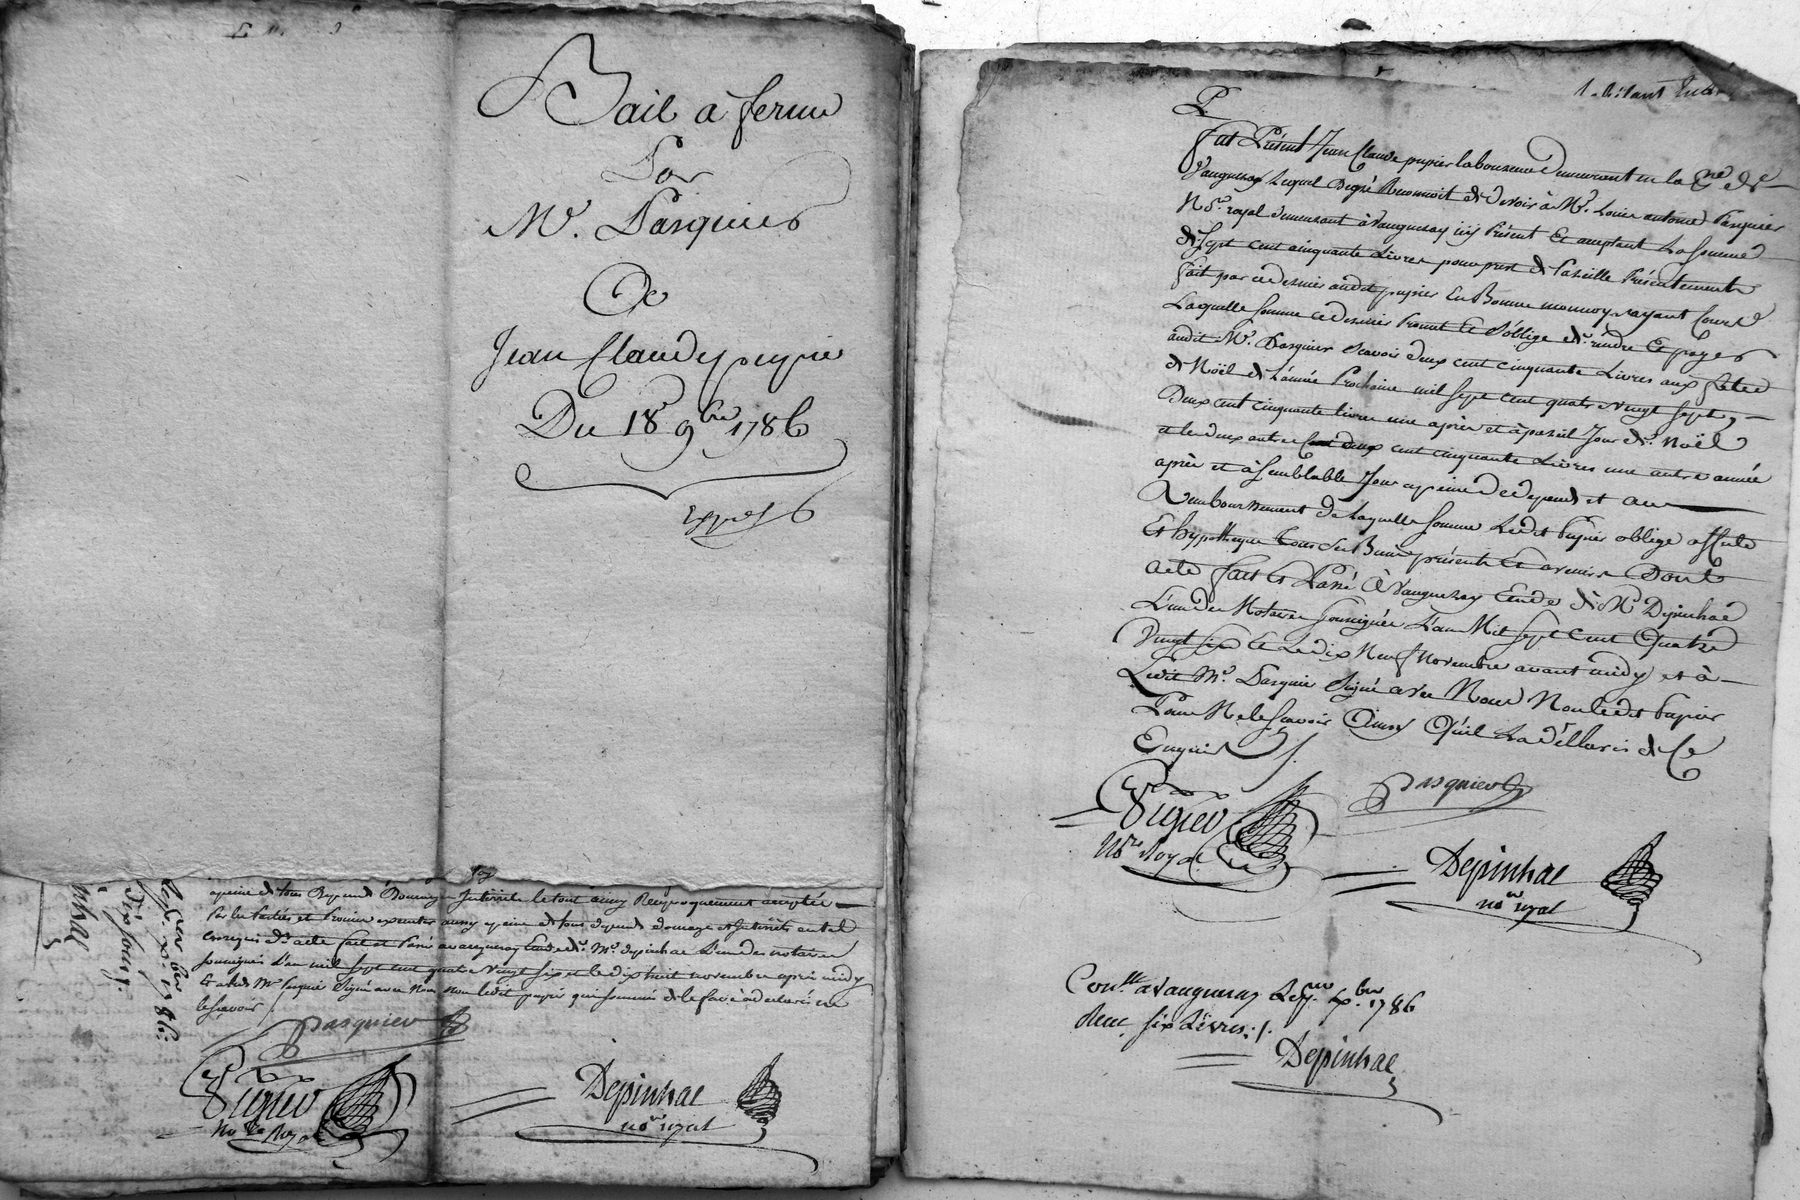 Bail a ferme
Par
Mr. Pasquier
A
Jean Claude pupier
Du 18 9bre 1786
exped
a peine de tous Depends Dommages Interrets le tout ainsy Reciproquement accepté
Par les Parties et Promis executer aussy a peine de tous depends domages et Interrets
acte fait et Passé a vaugneray Etude de Me. depinhac L'un des notaires
soussignés L'an mil sept cent quatre vingt six et le dix huit novembre après midy
Et a ledit Mr Pasquier Signé avec Nous Non ledit pupier qui sommé de le faire a declaré ne
le sçavoir /.
Pasquier
Vigier
No.re Royal
Depinhac
no.re royal
1786
Fut Présent Jean Claude pupier laboureur Demeurant en la
Vaugneray Lequel Degré Reconnoit de devoir à Mr. Louis antoine Pasquier
No.re royal demeurant à Vaugneray icy Présent Et aceptant La somme
de Sept cent cinquante Livres pour pret de Pareille Présentement
fait par ce dernier audit pupier En Bonne monnoy ayant Cours
Laquelle somme ce dernier Promet Et s'oblige de rendre Et payer
audit Mr. Pasquier Scavoir deux cent cinquante Livres aux fêtes
de Noël de L'année Prochaine mil sept cent quatre vingt sept,
Deux cent cinquante livres une après et à pareil Jour de Noël
et les deux autres cent cinquante Livres une autre année
après et à semblable Jour a peine de depends et au
Remboursement de Laquelle somme Ledit Pupier oblige affecte
Et hypotheque Tous Ses Biens présents Et avenir Dont
acte fait Et Passé à Vaugneray Etude de Me Depinhac
L'un des Notaires soussignés L'an Mil sept Cent Quatre
Vingt six Et Le dix Neuf Novembre avant midy et à
Ledit Mr. Pasquier Signé avec Nous Non ledit Pupier
Pour Ne le Scavoir Ainsy Qu'il L'a déclaré de Ce
Enquis /.
Pasquier
Vigier
No.re Royal
Depinhac
no.re royal
Con.llé a Vaugneray Le 1786
Recu six Livres /.
Depinhac